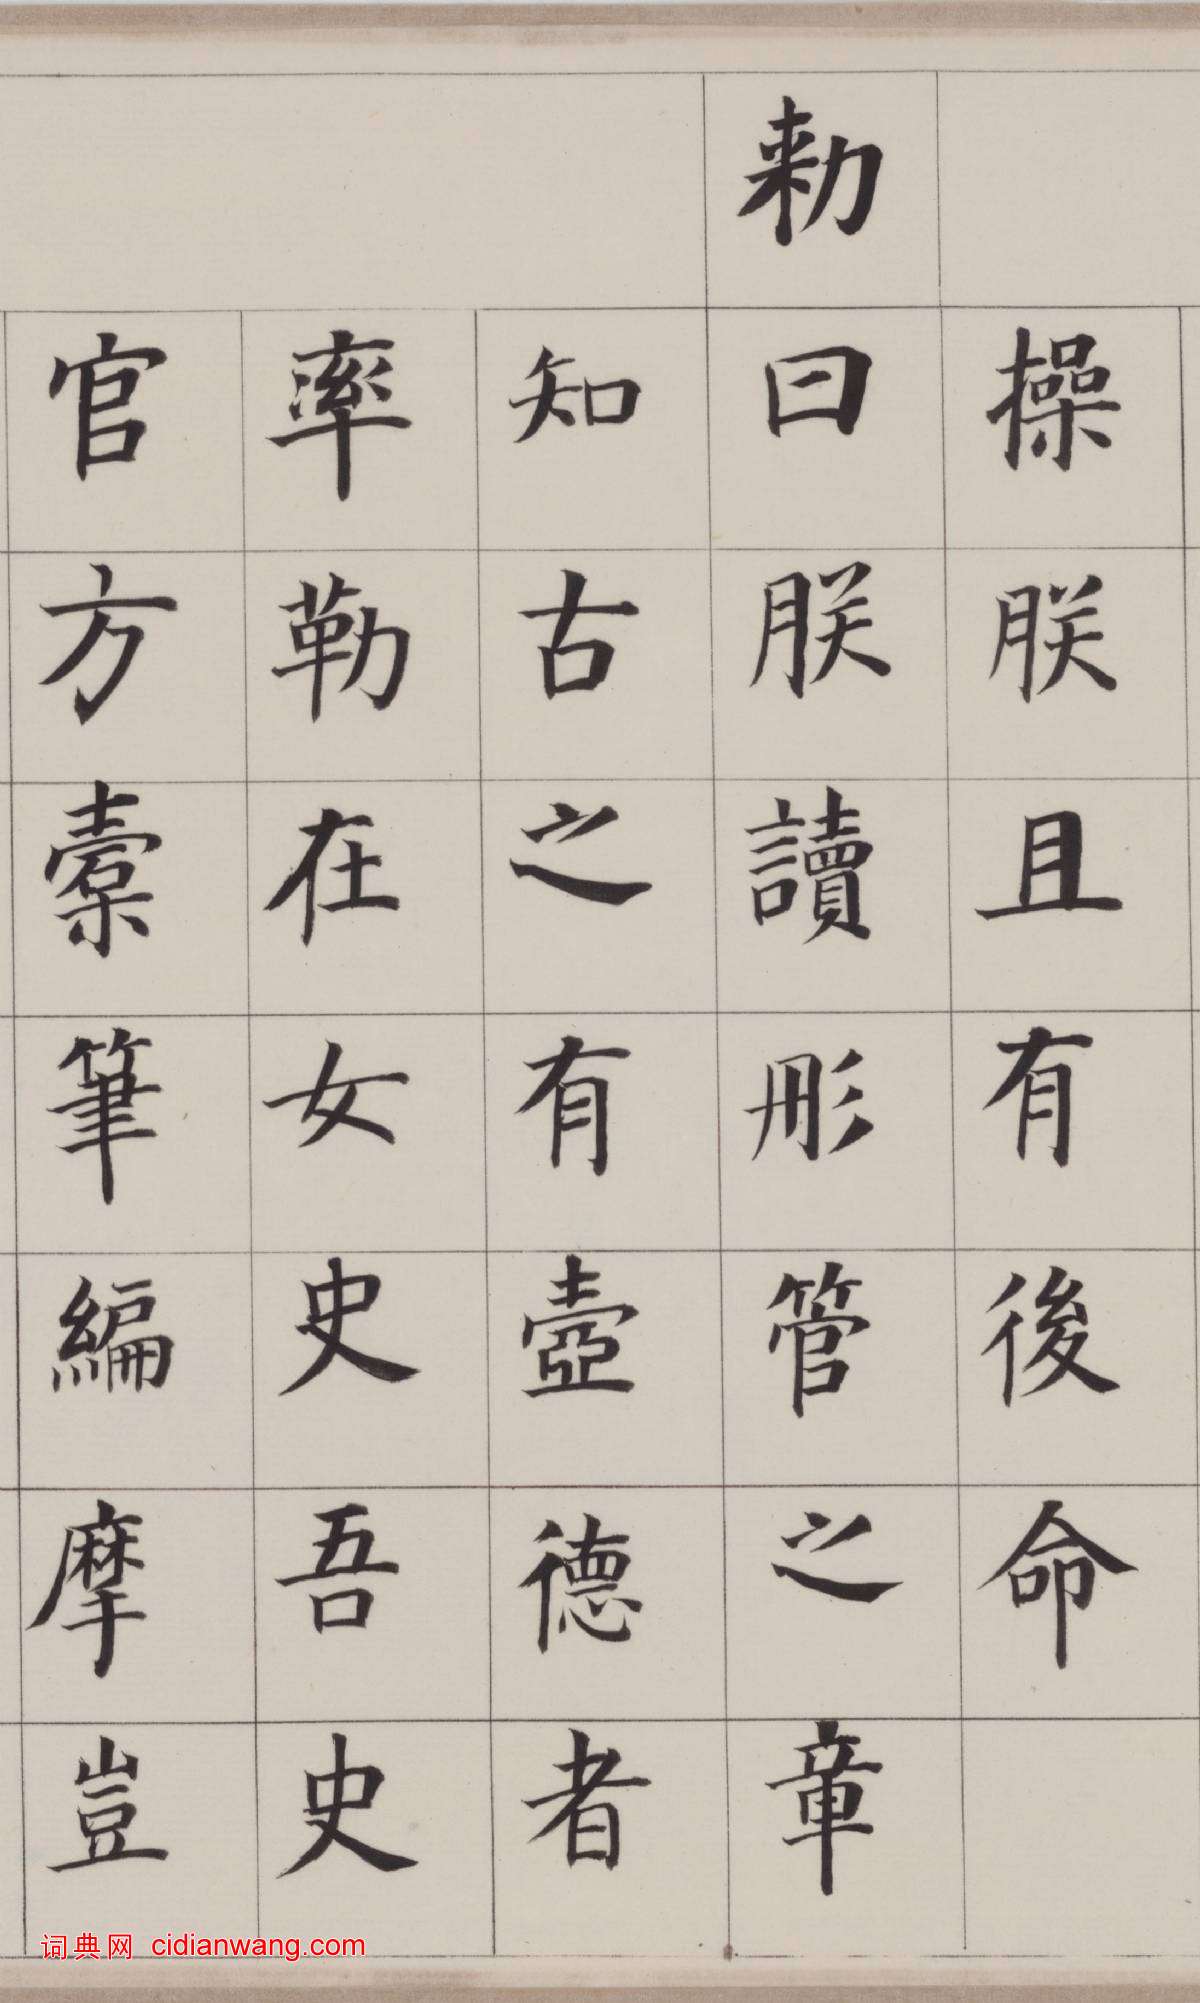 操朕且有後命
勑曰朕讀彤管之章
知古之有壺德者
率勒在女史吾史
官方櫜筆編摩豈
词典网 cidianwang.com